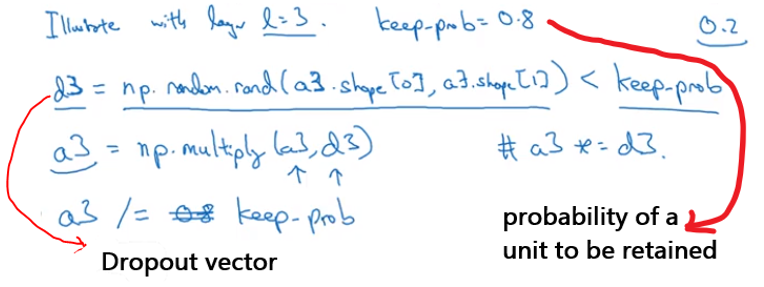 Illustrate with layer l=3. keep-prob=0.8 0.2
d3 = np.random.rand(a3.shape[0], a3.shape[1]) < keep-prob
a3 = np.multiply(a3, d3) # a3 *= d3.
a3 /= 0.8 keep-prob
probability of a
unit to be retained
Dropout vector